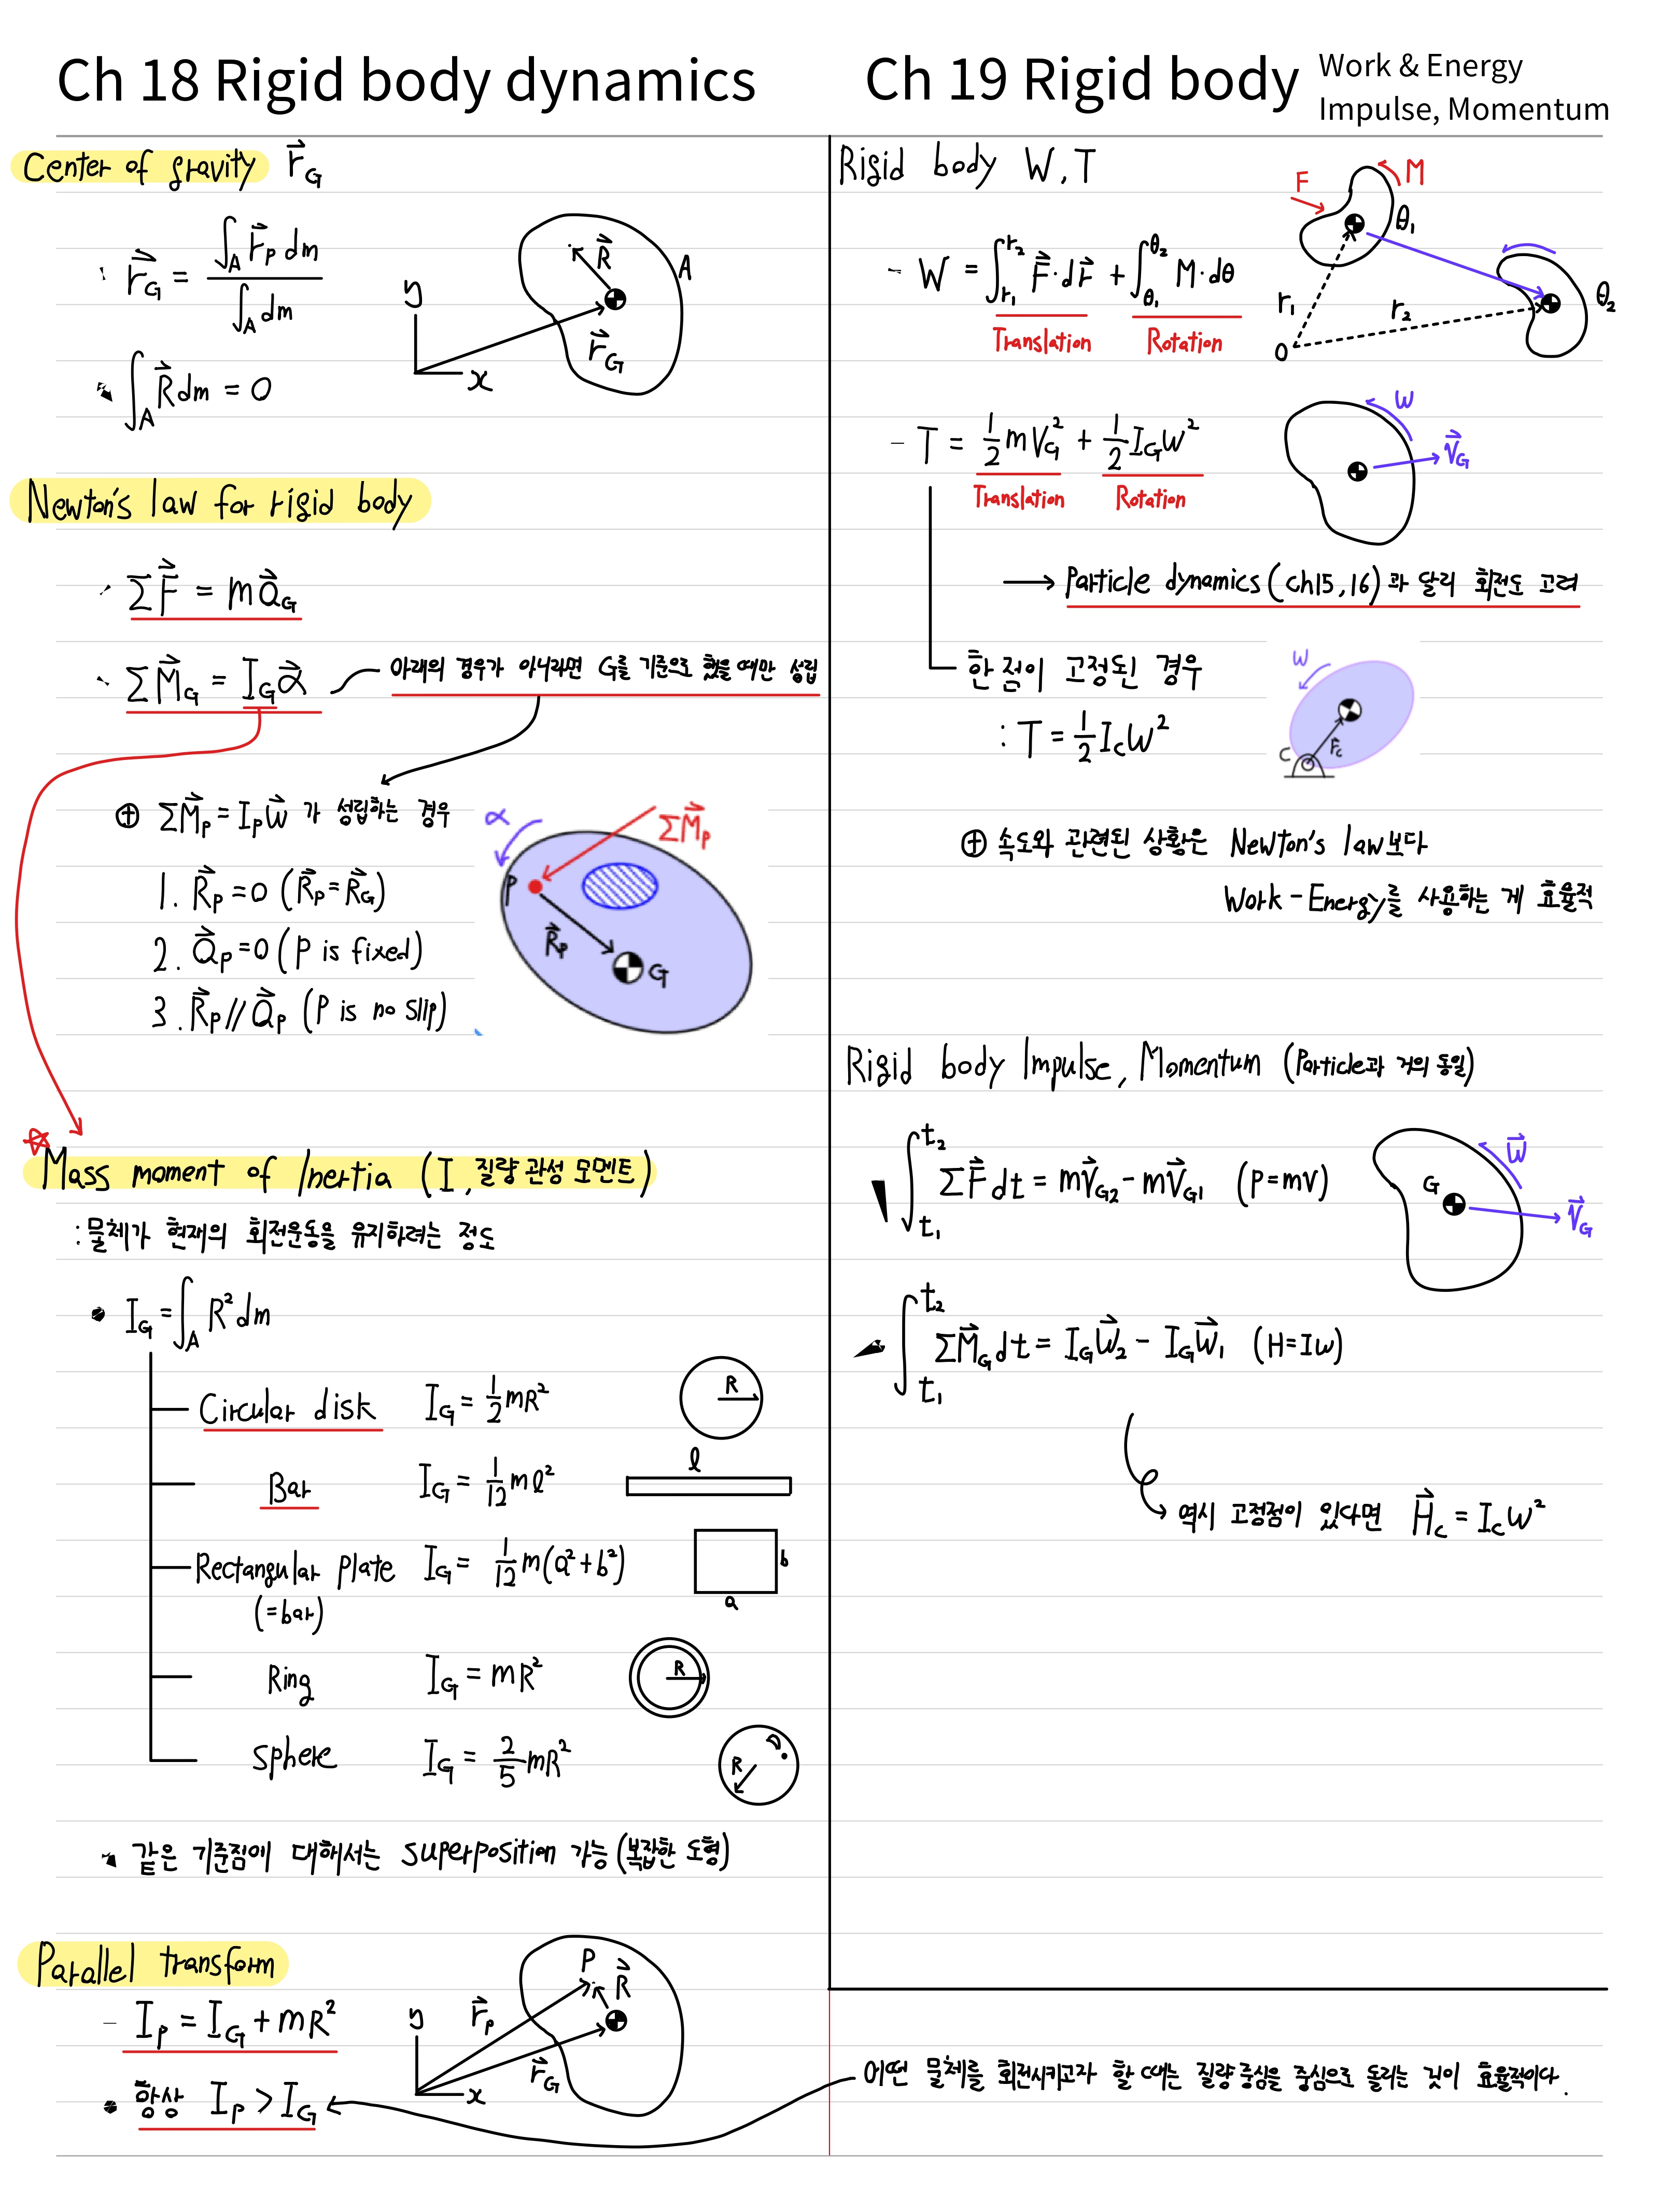 Ch 18 Rigid body dynamics
Center of gravity r⃗_G
r⃗_G = ∫_A r⃗_P dm / ∫_A dm
∫_A R⃗ dm = 0
R⃗
A
y
x
r⃗_G
Newton's law for rigid body
ΣF⃗ = ma⃗_G
ΣM⃗_G = I_G α⃗
아래의 경우가 아니라면 G를 기준으로 했을 때만 성립
⊕ ΣM⃗_P = I_P w⃗ 가 성립하는 경우
1. R⃗_P = 0 (R⃗_P = R⃗_G)
2. a⃗_P = 0 (P is fixed)
3. R⃗_P // a⃗_P (P is no slip)
α
ΣM⃗_P
P
R⃗_P
G
☆ Mass moment of Inertia (I, 질량 관성 모멘트)
: 물체가 현재의 회전운동을 유지하려는 정도
I_G = ∫_A R² dm
Circular disk I_G = 1/2 mR²
R
Bar I_G = 1/12 ml²
l
Rectangular plate I_G = 1/12 m(a²+b²)
(=bar)
b
a
Ring I_G = mR²
R
sphere I_G = 2/5 mR²
R
같은 기준점에 대해서는 superposition 가능 (복잡한 도형)
Parallel transform
- I_P = I_G + mR²
항상 I_P > I_G
P
R⃗
y
r⃗_P
r⃗_G
x
Ch 19 Rigid body
Work & Energy
Impulse, Momentum
Rigid body W, T
- W = ∫_r₁^r₂ F⃗·dr⃗ + ∫_θ₁^θ₂ M·dθ
Translation Rotation
F
M
θ₁
θ₂
r₁
r₂
O
- T = 1/2 mV_G² + 1/2 I_G w²
Translation Rotation
w
v⃗_G
→ Particle dynamics (ch15, 16)과 달리 회전도 고려
한 점이 고정된 경우
: T = 1/2 I_C w²
w
C
r⃗_C
⊕ 속도와 관련된 상황은 Newton's law보다
Work-Energy를 사용하는 게 효율적
Rigid body Impulse, Momentum (Particle과 거의 동일)
∫_t₁^t₂ ΣF⃗ dt = mv⃗_G2 - mv⃗_G1 (P=mv)
w⃗
G
v⃗_G
∫_t₁^t₂ ΣM⃗_G dt = I_G w⃗₂ - I_G w⃗₁ (H=Iw)
역시 고정점이 있다면 H⃗_C = I_C w²
어떤 물체를 회전시키고자 할 때는 질량 중심을 중심으로 돌리는 것이 효율적이다.